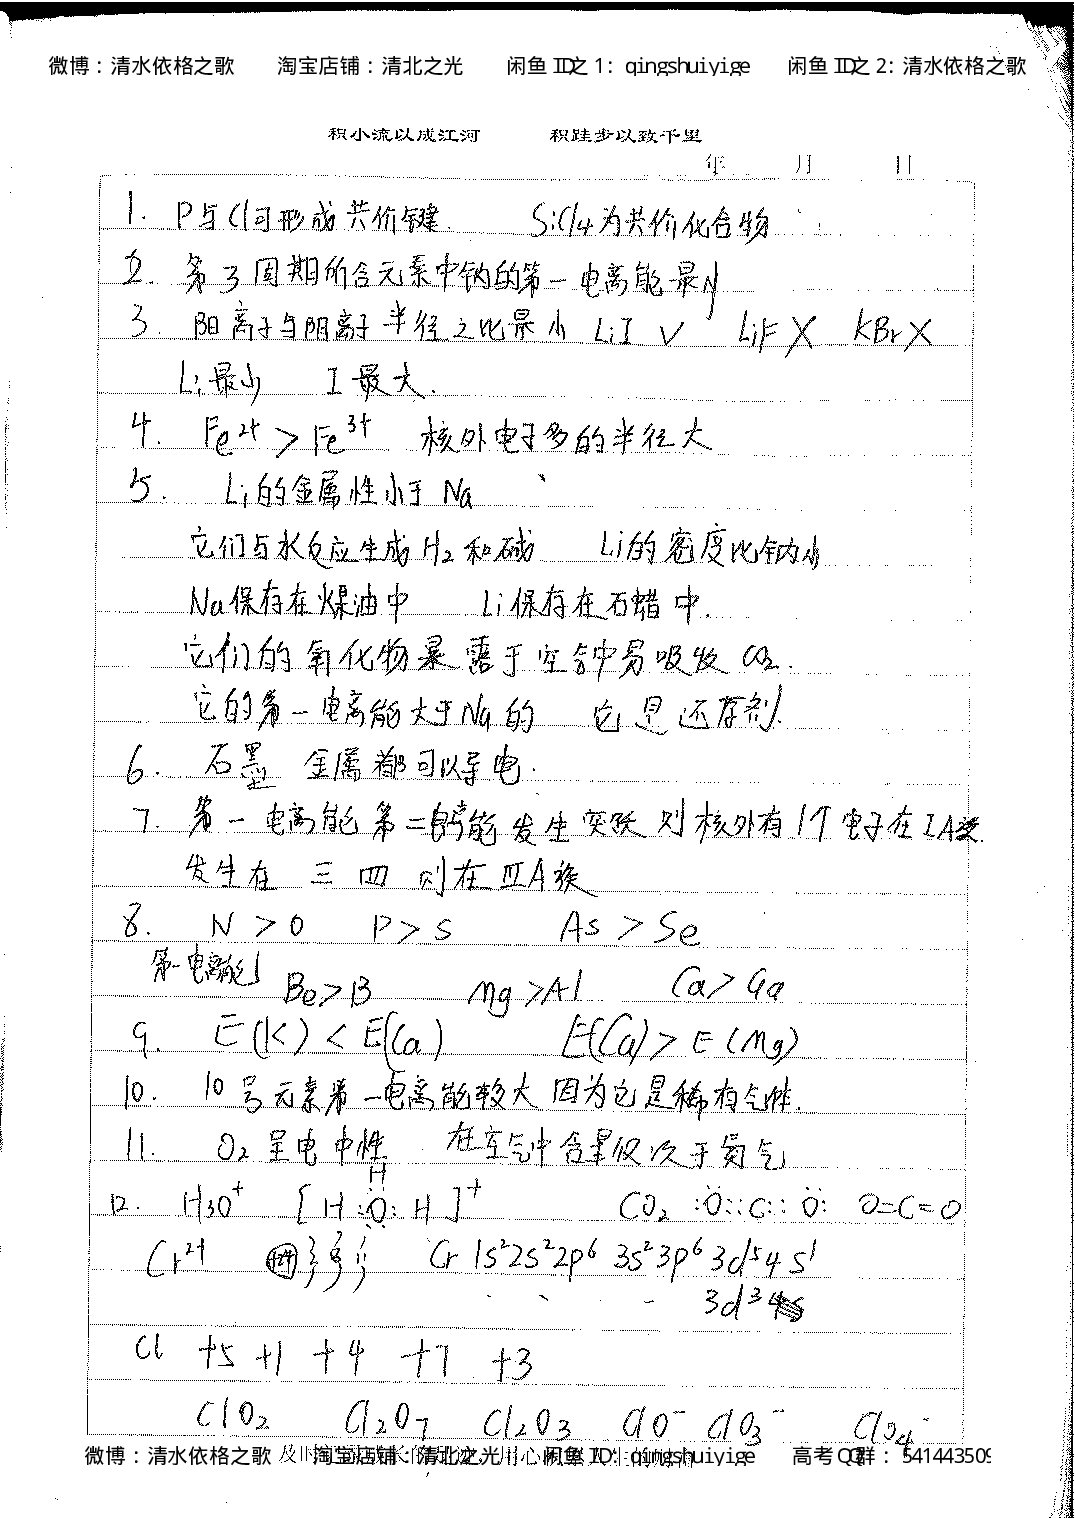 微博：清水依格之歌 淘宝店铺：清北之光 闲鱼 ID之 1: qingshuiyige 闲鱼 ID之 2: 清水依格之歌
积小流以成江河 积跬步以致千里
年 月 日
1. P与Cl可形成共价键. SiCl4为共价化合物
2. 第3周期所含元素中钠的第一电离能最小
3. 阳离子与阴离子半径之比最小 LiI ✓ LiF X KBr X
Li最小 I最大.
4. Fe²⁺ > Fe³⁺ 核外电子多的半径大
5. Li的金属性小于Na
它们与水反应生成H₂和碱 Li的密度比钠小
Na保存在煤油中 Li保存在石蜡中.
它们的氧化物暴露于空气中易吸收CO₂.
它的第一电离能大于Na的 它是还原剂.
6. 石墨 金属都可以导电.
7. 第一电离能第二电离能发生突跃则核外有1个电子在IA族.
发生在 三 四 则在ⅢA族
8. N > O P > S As > Se
第一电离能
Be > B Mg > Al Ca > Ga
9. E(K) < E(Ca) E(Ca) > E(Mg)
10. 10号元素第一电离能较大因为它是稀有气体.
11. O₂呈电中性 在空气中含量仅次于氮气
12. H₃O⁺ [H:O:H]⁺ CO₂ :O::C::O: O=C=O
H
Cr²⁺ Cr 1s²2s²2p⁶ 3s²3p⁶ 3d⁵4s¹
3d³4s
Cl +5 +1 +4 +7 +3
ClO₂ Cl₂O₇ Cl₂O₃ ClO⁻ ClO₃⁻ ClO₄⁻
微博：清水依格之歌 淘宝店铺：清北之光 闲鱼 ID: qingshuiyige 高考QQ群：541443509